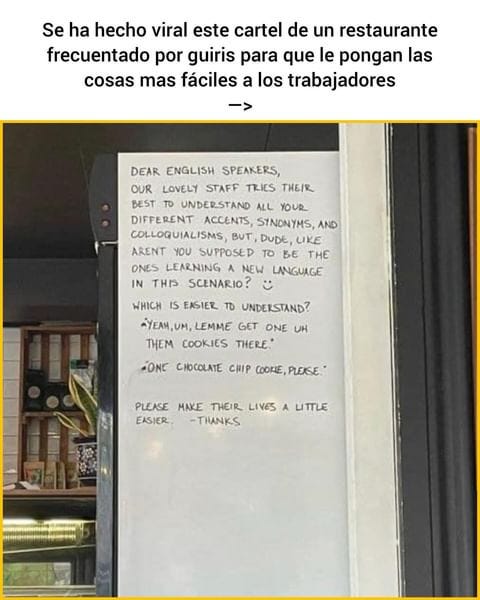 Se ha hecho viral este cartel de un restaurante
frecuentado por guiris para que le pongan las
cosas mas fáciles a los trabajadores
—>
DEAR ENGLISH SPEAKERS,
OUR LOVELY STAFF TRIES THEIR
BEST TO UNDERSTAND ALL YOUR
DIFFERENT ACCENTS, SYNONYMS, AND
COLLOQUIALISMS, BUT, DUDE, LIKE
ARENT YOU SUPPOSED TO BE THE
ONES LEARNING A NEW LANGUAGE
IN THIS SCENARIO? :)
WHICH IS EASIER TO UNDERSTAND?
"YEAH, UM, LEMME GET ONE UH
THEM COOKIES THERE."
"ONE CHOCOLATE CHIP COOKIE, PLEASE."
PLEASE MAKE THEIR LIVES A LITTLE
EASIER. -THANKS